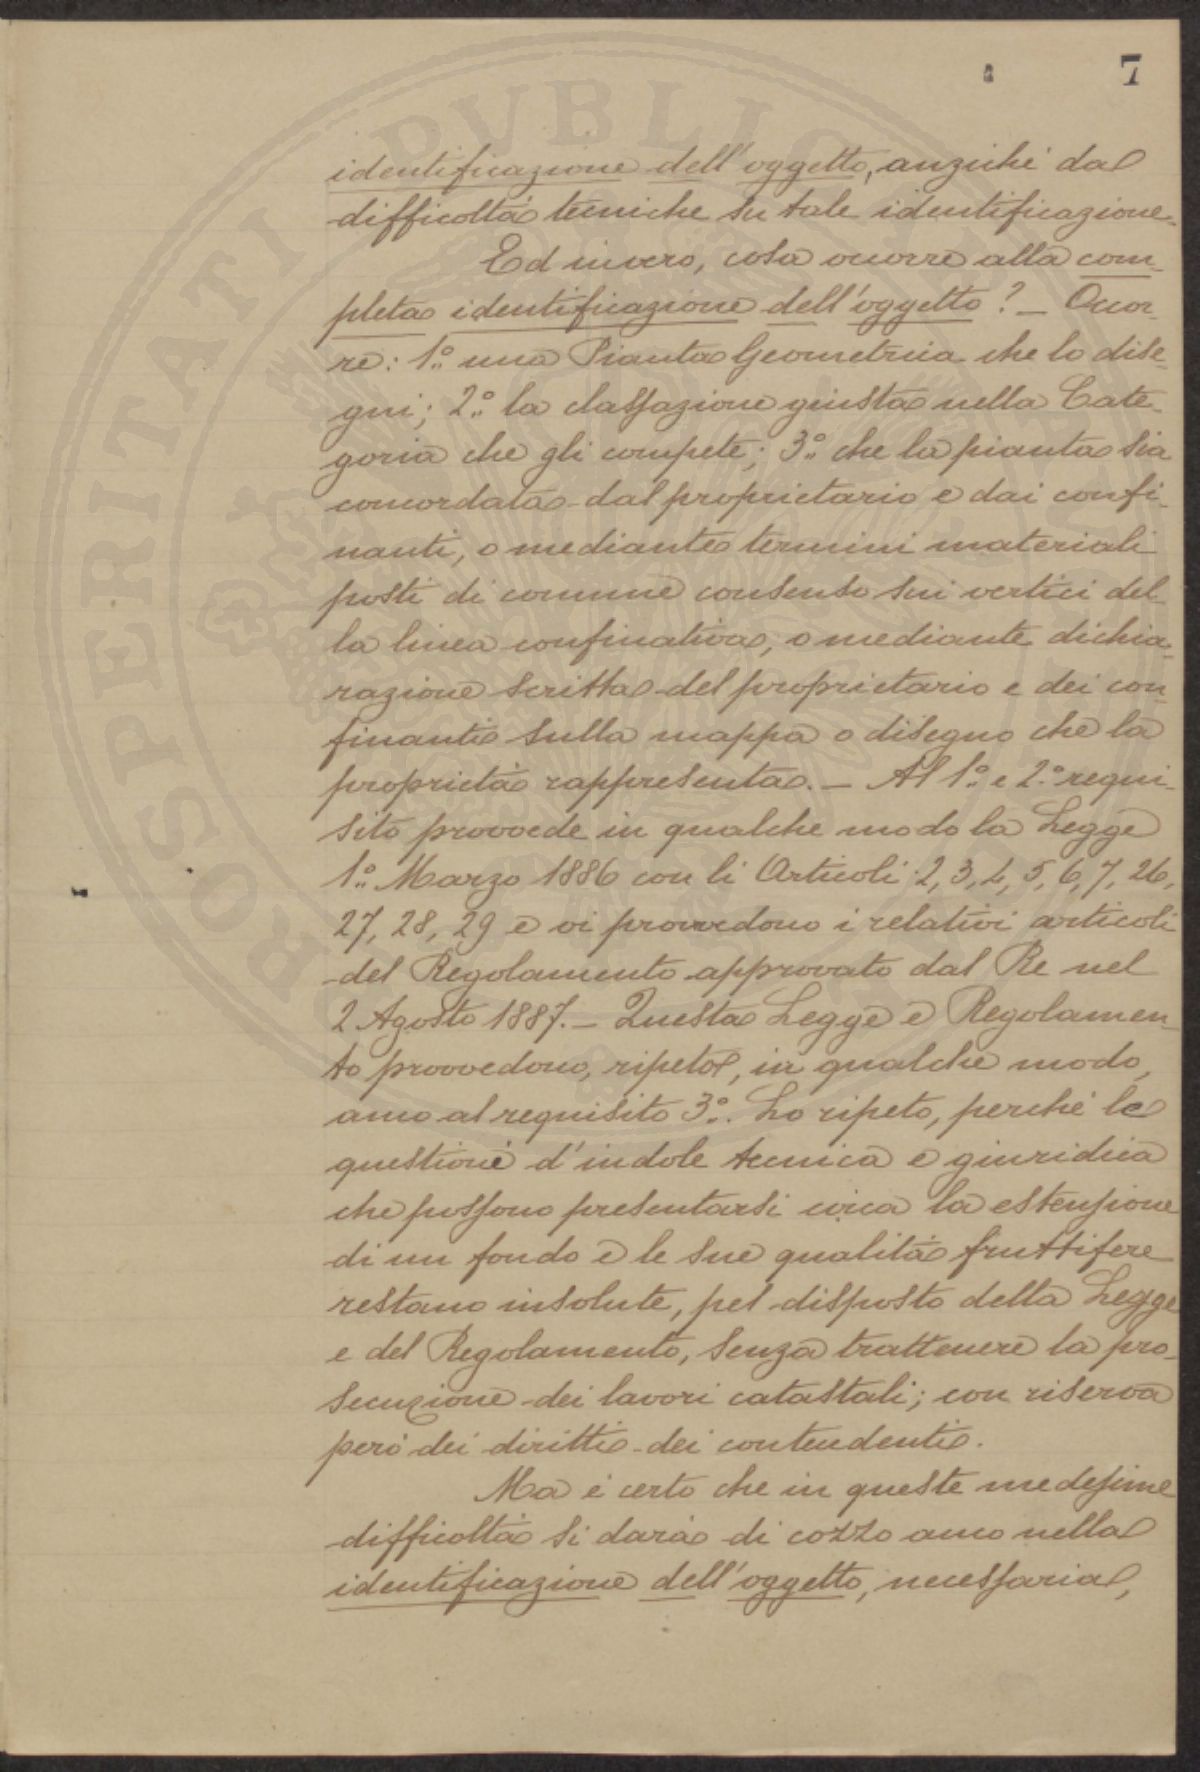 7
identificazione dell'oggetto, anziché da
difficoltà tecniche su tale identificazione.
Ed invero, cosa occorre alla com-
pleta identificazione dell'oggetto? — Occor-
re: 1.° una Pianta Geometrica che lo dise-
gni; 2.° la classazione giusta nella Cate-
goria che gli compete; 3.° che la pianta sia
concordata dal proprietario e dai confi-
nanti, o mediante termini materiali
posti di comune consenso sui vertici del-
la linea confinativa, o mediante dichia-
razione scritta del proprietario e dei con-
finanti sulla mappa o disegno che la
proprietà rappresenta. — Al 1.° e 2.° requi-
sito provvede in qualche modo la Legge
1.° Marzo 1886 con li Articoli 2, 3, 4, 5, 6, 7, 26,
27, 28, 29 e vi provvedono i relativi articoli
del Regolamento approvato dal Re nel
2 Agosto 1887. — Questa Legge e Regolamen-
to provvedono, ripeto, in qualche modo,
anco al requisito 3.°. Lo ripeto, perché le
questioni d'indole tecnica e giuridica
che possono presentarsi circa la estensione
di un fondo e le sue qualità fruttifere
restano insolute, pel disposto della Legge
e del Regolamento, senza trattenere la pro-
secuzione dei lavori catastali; con riserva
però dei diritti dei contendenti.
Ma è certo che in queste medesime
difficoltà si darà di cozzo anco nella
identificazione dell'oggetto, necessaria,
PROSPERITATI PUBLICAE